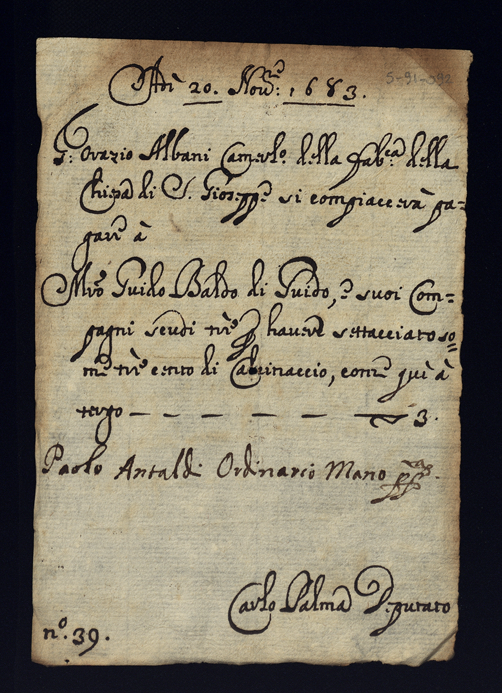 Adì 20. Nov.re 1683.
5-91-392
S.r Orazio Albani Camerl.o della fab.ca della
Chiesa di S. Gioseppe si compiacerà pa=
gare à
Mro Guido Baldo di Guido, e suoi Com=
pagni scudi trè p havere settacciato so=
me trè cento di Calcinaccio, come quì à
tergo — — — — — — 3.
Paolo Antaldi Ordinarci Mano pp.a
Carlo Palma Deputato
n.o 39.